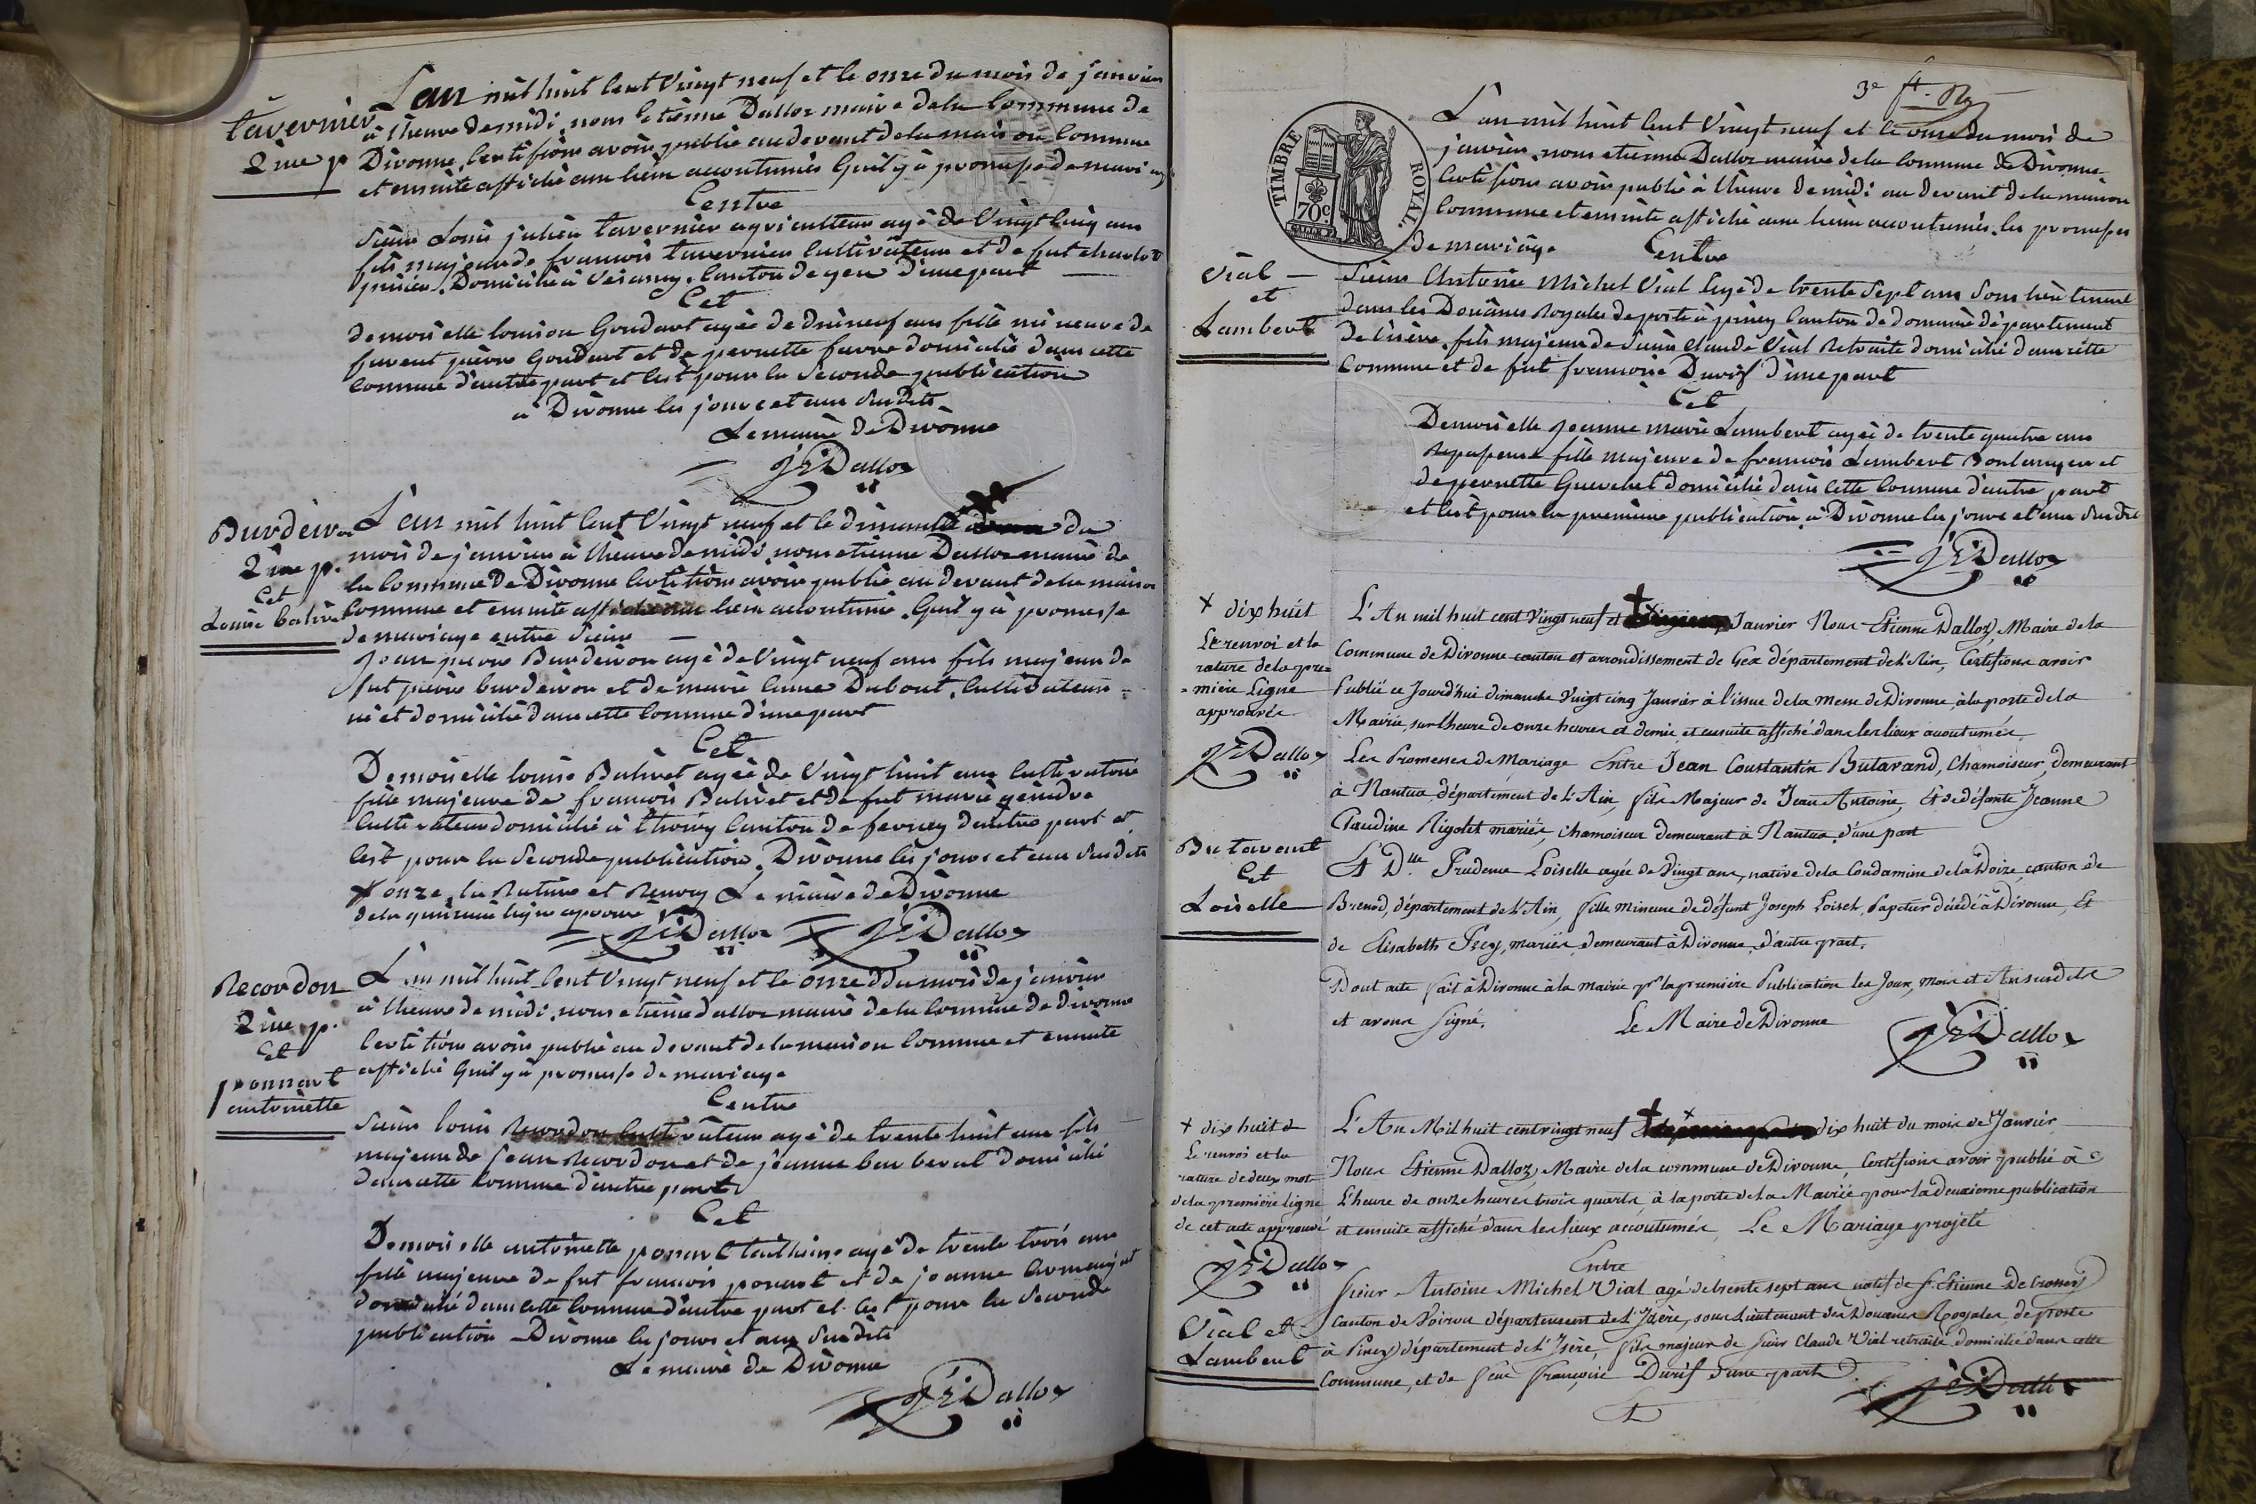 Tavernier
2me p
L'an mil huit cent vingt neuf et le onze du mois de janvier
à l'heure de midi, nous etienne Dalloz maire de la Commune de
Divonne, Certifions avoir publié au devant de la maison Commune
et ensuite affiché aux lieux accoutumés quil y à promesse de mariage
Centre
Sieur Louis julien tavernier agriculteur agé de Vingt Cinq ans
fils majeur de francois tavernier Cultivateur et de fut charlote
Domicilié à Vesancy Canton de gex d'une part
Cet
demoiselle louison Goudart agée de dixneuf ans fille mineure de
pierre Goudart et de pernette favre domicilié dans cette
Commune d'autre part et c'est pour la Seconde publication
à Divonne les jours et an Susdits
Le maire de Divonne
JE Dalloz
Burdeiron
2me p.
Cet
Louise Balivet
L'an mil huit Cent Vingt neuf et le dimanche du
mois de janvier à l'heure de midi, nous etienne Dalloz maire de
la Commune de Divonne Certifions avoir publié au devant de la maison
Commune et ensuite affiché aux lieux accoutumé. Quil y à promesse
de mariage entre Sieur
Jean pierre Burdeiron agé de Vingt neuf ans fils majeur de
fut pierre burdeiron et de marie Dubout, Cultivateur
né et domicilié dans cette Commune d'une part
Cet
Demoiselle louise Balivet agée de Vingt huit ans Cultivatrice
fille majeure de francois Balivet et de fut marie
Cultivateur domicilié à thoiry Canton de ferney d'autre part et
c'est pour la Seconde publication. Divonne les jours et an Susdits
onze, la Rature et Renvoy Le maire de Divonne
de la ligne aprouvé
JE Dalloz JE Dalloz
Recordon
2me p.
Cet
ponnart
antoinette
L'an mil huit Cent Vingt neuf et le onze du mois de janvier
à l'heure de midi, nous etienne dalloz maire de la Commune de Divonne
Certifions avoir publié au devant de la maison Commune et ensuite
affiché Quil y à promesse de mariage
Centre
Sieur louis Recordon Cultivateur agé de trente huit ans fils
majeur de jean Recordon et de jeanne domicilié
dans cette Commune d'autre part
Cet
Demoiselle antoinette ponart agé de trente trois ans
fille majeure de fut francois ponart et de jeanne
domicilié dans cette Commune d'autre part et c'est pour la Seconde
publication Divonne les jours et an Susdits
Le maire de Divonne
JE Dalloz
3e
TIMBRE ROYAL.
70c.
L'an mil huit Cent Vingt neuf et le onze du mois de
janvier, nous etienne Dalloz maire de la Commune de Divonne
Certifions avoir publié à l'heure de midi au devant de la maison
Commune et ensuite affiché aux lieux accoutumés. les promesses
de mariage
Centre
Vial
et
Lambert
Sieur Antoine Michel Vial Agé de trente Sept ans Sous lieutenant
dans les Douânes Royales de poste à piney Canton de département
de l'isère, fils majeur de Sieur Claude Vial Retraité domicilié dans cette
Commune et de fut francoise Durif d'une part
Cet
Demoiselle Jeanne marie Lambert agée de trente quatre ans
Repaseuse fille majeure de francois Lambert Boulangeur et
de pernette domicilié dans cette Commune d'autre part
et c'est pour la premiere publication à Divonne les jours et an Susdits
JE Dalloz
+ dix huit
Le renvoi et la
rature de la pre=
=mière Ligne
approuvée
JE Dalloz
Butavent
Cet
Loiselle
L'An mil huit cent Vingt neuf et Janvier Nous Etienne Dalloz, Maire de la
Commune de Divonne canton et arrondissement de Gex département de l'Ain, Certifions avoir
Publié ce Jourd'hui dimanche Vingt cinq Janvier à l'issue de la Messe de Divonne, à la porte de la
Mairie, sur l'heure de onze heures et demie et ensuite affiché dans les lieux accoutumés,
Les Promesses de Mariage Entre Jean Constantin Butavand, Chamoiseur, demeurant
à Nantua, département de l'Ain, fils Majeur de Jean Antoine, Et de défunte Jeanne
Claudine Rigolet mariés, chamoiseur demeurant à Nantua d'une part
Et Dlle Prudence Loiselle agée de Vingt ans, native de la Condamine de la Doize, canton de
Brenod, département de l'Ain, fille Mineure de défunt Joseph Loisel, Papetier décédé à Divonne, Et
de Elisabeth Frey, mariés, demeurant à Divonne, d'autre part,
Dont acte fait à Divonne à la mairie pr la première Publication les Jour, Mois et An susdits
et avons signé,
Le Maire de Divonne
JE Dalloz
+ dix huit d
Le renvoi et la
rature de deux mots
de la première ligne
de cet acte approuvé
JE Dalloz
Vial et
Lambert
L'An Mil huit cent vingt neuf dix huit du mois de Janvier
Nous Etienne Dalloz, Maire de la commune de Divonne, Certifions avoir publié à
L'heure de onze heures trois quarts à la porte de la Mairie pour la deuxieme publication
et ensuite affiché dans les lieux accoutumés, Le Mariage projeté
Entre
Sieur Antoine Michel Vial agé de trente sept ans natif de St Etienne De Crossey
Canton de Voiron département de L'Isère, sous Lieutenant des Douanes Royales, de poste
à Piney département de L'Isère, fils majeur de Sieur Claude Vial retraité domicilié dans cette
Commune, et de feue Françoise Durif d'une part
JE Dalloz